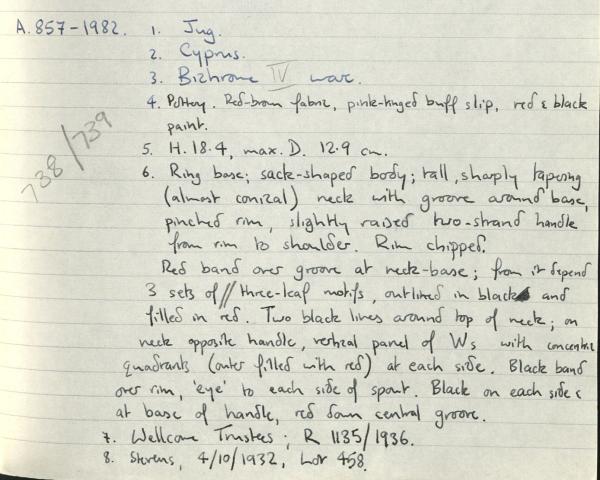 A.857-1982. 1. Jug.
2. Cyprus.
3. Bichrome IV ware.
4. Pottery. Red-brown fabric, pink-tinged buff slip, red & black
paint.
738/739
5. H. 18.4, max. D. 12.9 cm.
6. Ring base; sack-shaped body; tall, sharply tapering
(almost conical) neck with groove around base,
pinched rim, slightly raised two-strand handle
from rim to shoulder. Rim chipped.
Red band over groove at neck-base; from it depend
3 sets of // three-leaf motifs, outlined in black and
filled in red. Two black lines around top of neck; on
neck opposite handle, vertical panel of Ws with concentric
quadrants (outer filled with red) at each side. Black band
over rim, 'eye' to each side of spout. Black on each side &
at base of handle, red down central groove.
7. Wellcome Trustees; R 1135/1936.
8. Stevens, 4/10/1932, Lot 458.